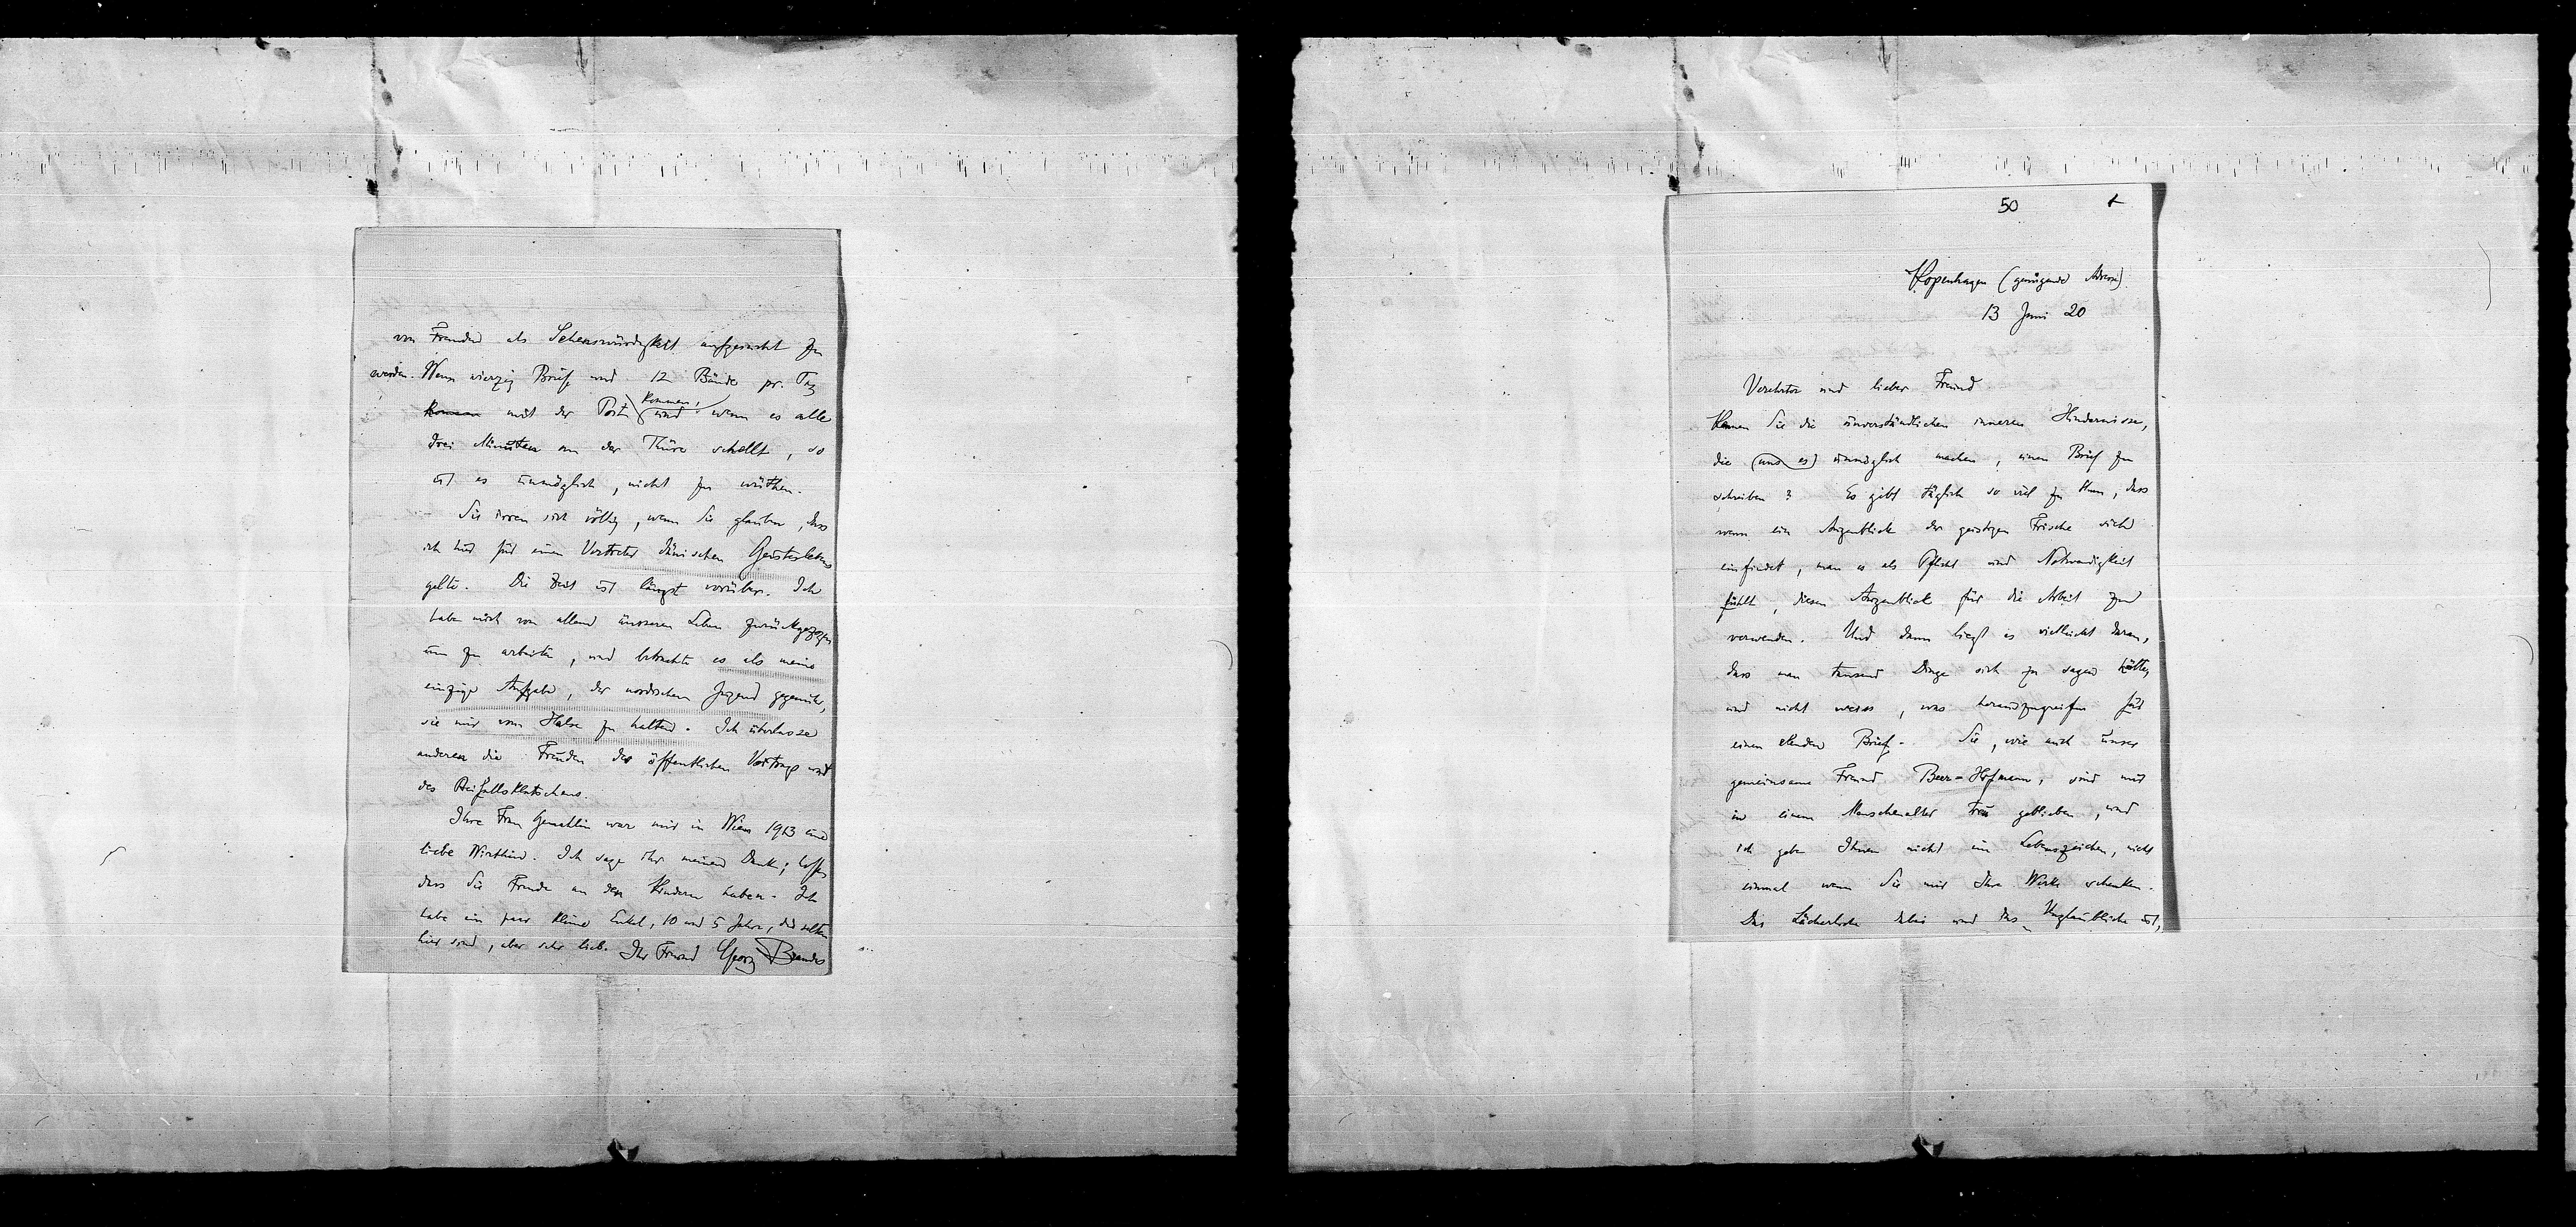 von Fremden als Sehenswürdigkeit aufgesucht zu
werden. Wenn vierzig Briefe und 12 Bände pr. Tag
kommen,
kommen mit der Post und wenn es alle
drei Minuten an der Thüre schellt, so
ist es unmöglich, nicht zu wüthen.
Sie irren sich völlig, wenn Sie glauben, dass
ich hier für einen Vertreter dänischen Geisteslebens
gelte. Die Zeit ist längst vorüber. Ich
habe mich von allem äusseren Leben zurückgezogen
um zu arbeiten, und betrachte es als meine
einzige Aufgabe, der nordischen Jugend gegenüber,
sie mir vom Halse zu halten. Ich überlasse
anderen die Freuden des öffentlichen Vortrags und
des Beifallsklatschens.
Ihre Frau Gemahlin war mir in Wien 1913 eine
liebe Wirthin. Ich sage ihr meinen Dank; hoffe
dass Sie Freude an den Kindern haben. Ich
habe ein paar kleine Enkel, 10 und 5 Jahre, die selten
hier sind, aber sehr lieb. Ihr Freund Georg Brandes
50
Kopenhagen (genügende Adresse)
13 Juni 20
Verehrter und lieber Freund
Kennen Sie die unverständlichen inneren Hindernisse,
die (uns es) unmöglich machen, einen Brief zu
schreiben? Es gibt täglich so viel zu thun, dass
wenn ein Augenblick der geistigen Frische sich
einfindet, man es als Pflicht und Notwendigkeit
fühlt, diesen Augenblick für die Arbeit zu
verwenden. Und dann liegt es vielleicht daran,
dass man tausend Dinge sich zu sagen hätte,
und nicht weiss, was herauszugreifen für
einen elenden Brief. Sie, wie auch unser
gemeinsame Freund Beer-Hofmann, sind mir
in einem Menschenalter treu geblieben, und
ich gebe Ihnen nicht ein Lebenszeichen, nicht
einmal wenn Sie mir Ihre Werke schenken.
Das Lächerliche dabei und das Unglaubliche ist,